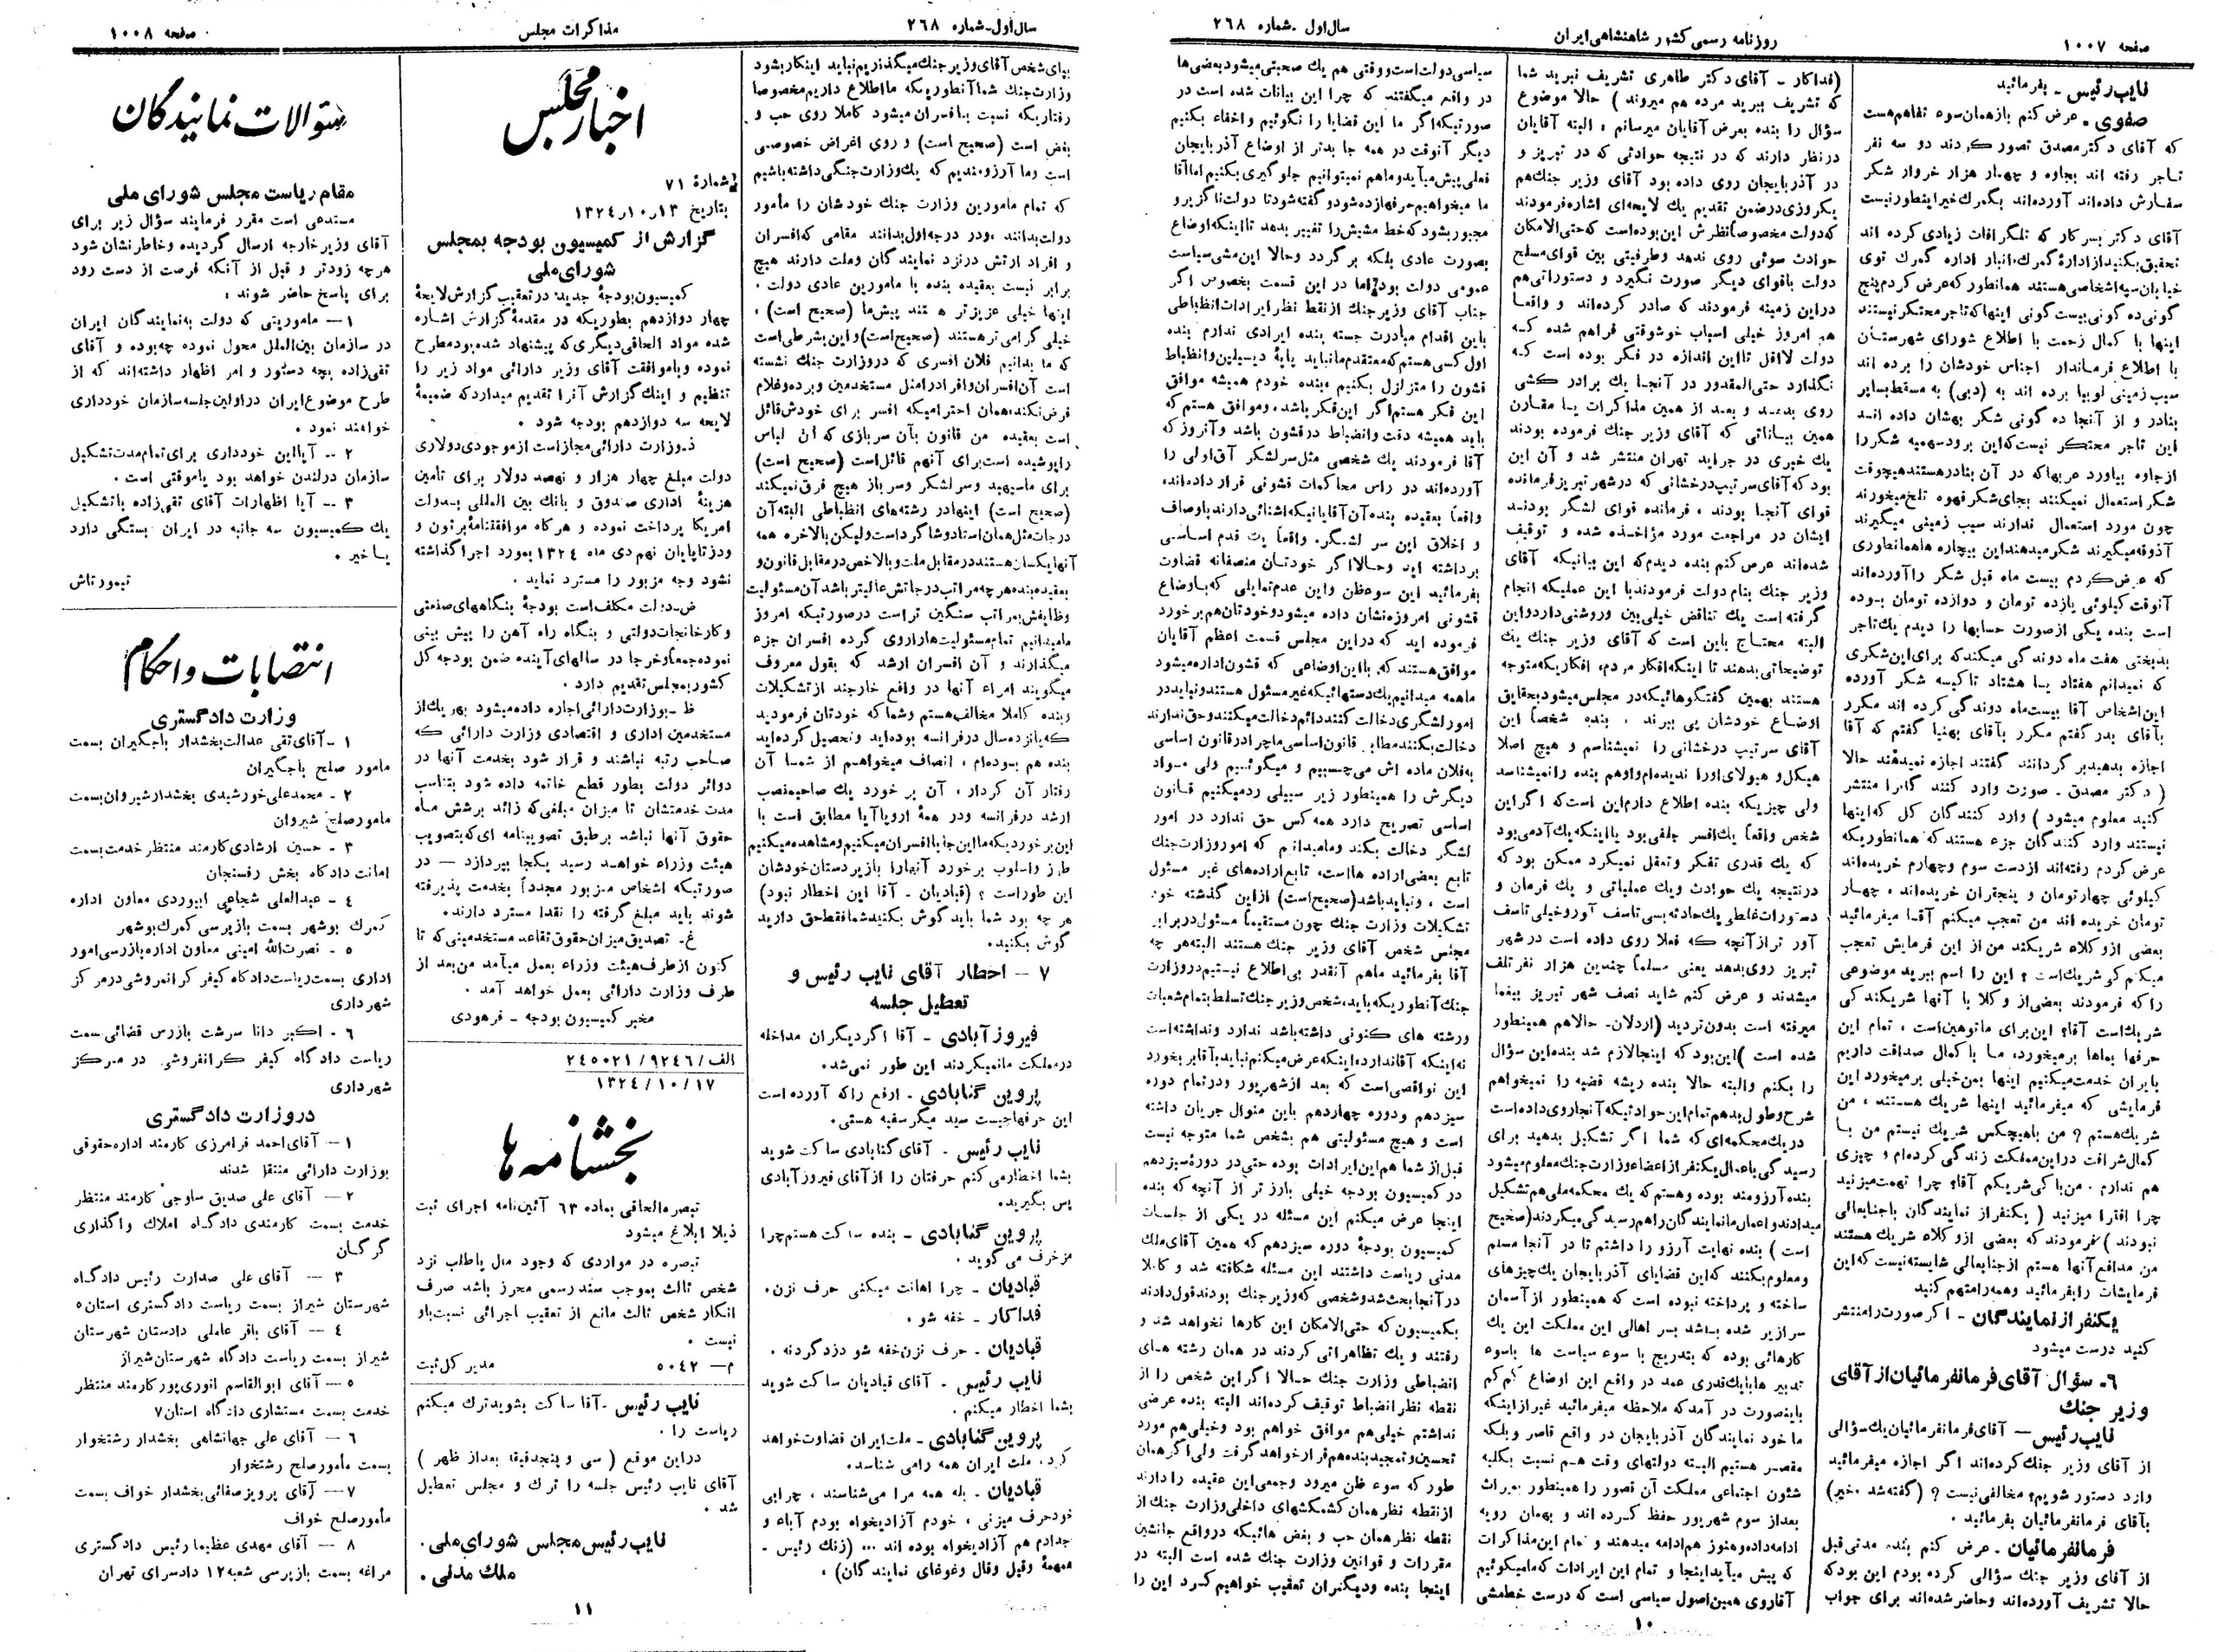 صفحه ۱۰۰۷
روزنامه رسمی کشور شاهنشاهی ایران
سال اول ـ شماره ۲۶۸
نایب رئیس ـ بفرمائید
صفوی ـ عرض کنم بازهمان سوء تفاهم هست
که آقای دکتر مصدق تصور کردند دو سه نفر
تاجر رفته اند بجاوه و چهار هزار خروار شکر
سفارش داده‌اند آورده‌اند بگمرك خیر اینطور نیست
آقای دکتر بسر کار که تلگرافات زیادی کرده اند
تحقیق بکنید از ادارهٔ گمرك، انبار اداره گمرك توی
خیابان سپه اشخاصی هستند همانطور که عرض کردم پنج
گونی ده گونی بیست گونی اینها که تاجر محتکر نیستند
اینها با کمال زحمت با اطلاع شورای شهرستان
با اطلاع فرماندار اجناس خودشان را برده اند
سیب زمینی لوبیا برده اند به (دبی) به مسقط بسایر
بنادر و از آنجا ده گونی شکر بهشان داده اند
این تاجر محتکر نیست که این برود سهمیه شکر را
از جاوه بیاورد عربها که در آن بنادر هستند هیچوقت
شکر استعمال نمیکنند بجای شکر قهوه تلخ میخورند
چون مورد استعمال ندارند سیب زمینی میگیرند
آذوقه میگیرند شکر میدهند این بیچاره ها همانطوری
که عرض کردم بیست ماه قبل شکر را آورده‌اند
آنوقت کیلوئی یازده تومان و دوازده تومان بوده
است بنده یکی از صورت حسابها را دیدم یك تاجر
بدبختی هفت ماه دوندگی میکند که برای این شکری
که نمیدانم هفتاد یا هشتاد تا کیسه شکر آورده
این اشخاص آقا بیست ماه دوندگی کرده اند مکرر
بآقای بدر گفتم مکرر بآقای بهنیا گفتم که آقا
اجازه بدهید بر گردانند گفتند اجازه نمیدهند حالا
( دکتر مصدق ـ صورت وارد کنند گانرا منتشر
کنید معلوم میشود ) وارد کنندگان کل که اینها
نیستند وارد کنندگان جزء هستند که همانطوریکه
عرض کردم رفته‌اند از دست سوم و چهارم خریده‌اند
کیلوئی چهار تومان و پنجقران خریده‌اند ، چهار
تومان خریده اند من تعجب میکنم آقا میفرمائید
بعضی از وکلاء شریکند من از این فرمایش تعجب
میکنم کی شریك است ؟ این را اسم ببرید موضوعی
را که فرمودند بعضی از وکلا با آنها شریکند کی
شریك است آقا؟ این برای ما توهین است ، تمام این
حرفها بماها برمیخورد، ما با کمال صداقت داریم
بایران خدمت میکنیم اینها بمن خیلی برمیخورد این
فرمایشی که میفرمائید اینها شریك هستند ، من
شریك هستم ؟ من باهیچکس شریك نیستم من با
کمال شرافت در این مملکت زندگی کرده‌ام و چیزی
هم ندارم . من با کی شریکم آقا؟ چرا تهمت میزنید
چرا افترا میزنید ( یکنفر از نمایندگان با جنابعالی
نبودند ) فرمودند که بعضی از وکلاء شریك هستند
من مدافع آنها هستم از جنابعالی شایسته نیست که این
فرمایشات را بفرمائید و همه را متهم کنید
یکنفر از نمایندگان ـ اگر صورت را منتشر
کنید درست میشود
۶ـ سؤال آقای فرمانفرمائیان از آقای
وزیر جنك
نایب رئیس ـ آقای فرمانفرمائیان یك سؤالی
از آقای وزیر جنك کرده‌اند اگر اجازه میفرمائید
وارد دستور شویم؟ مخالفی نیست ؟ (گفته شد ـ خیر)
بآقای فرمانفرمائیان بفرمائید .
فرمانفرمائیان ـ عرض کنم بنده مدتی قبل
از آقای وزیر جنك سؤالی کرده بودم این بود که
حالا تشریف آورده‌اند و حاضر شده‌اند برای جواب
(فداکار ـ آقای دکتر طاهری تشریف نبرید شما
که تشریف ببرید مرده هم میروند ) حالا موضوع
سؤال را بنده بعرض آقایان میرسانم ، البته آقایان
در نظر دارند که در نتیجه حوادثی که در تبریز و
در آذربایجان روی داده بود آقای وزیر جنك هم
یکروزی در ضمن تقدیم یك لایحه‌ای اشاره فرمودند
که دولت مخصوصاً نظرش این بوده است که حتی الامکان
حوادث سوئی روی ندهد و طرفیتی بین قوای مسلح
دولت باقوای دیگر صورت نگیرد و دستوراتی هم
در این زمینه فرمودند که صادر کرده‌اند و واقعاً
هم امروز خیلی اسباب خوشوقتی فراهم شده که
دولت لااقل تا این اندازه در فکر بوده است که
نگذارد حتی المقدور در آنجا یك برادر کشی
روی بدهد و بعد از همین مذاکرات یا مقارن
همین بیاناتی که آقای وزیر جنك فرموده بودند
یك خبری در جراید تهران منتشر شد و آن این
بود که آقای سرتیپ درخشانی که در شهر تبریز فرمانده
قوای آنجا بودند ، فرمانده قوای لشگر بودند
ایشان در مراجعت مورد مؤاخذه شده و توقیف
شده‌اند عرض کنم بنده دیدم که این بیانیکه آقای
وزیر جنك بنام دولت فرمودند با این عملیکه انجام
گرفته است یك تناقض خیلی بین و روشنی دارد و این
البته محتاج باین است که آقای وزیر جنك یك
توضیحاتی بدهند تا اینکه افکار مردم، افکاریکه متوجه
هستند بهمین گفتگوهائیکه در مجلس میشود بحقایق
اوضاع خودشان پی ببرند . بنده شخصاً این
آقای سرتیپ درخشانی را نمیشناسم و هیچ اصلا
هیکل و هیولای اورا ندیده‌ام و او هم بنده را نمیشناسد
ولی چیزیکه بنده اطلاع دارم این است که اگر این
شخص واقعاً یك افسر جلفی بود یا اینکه یك آدمی بود
که یك قدری تفکر و تعقل نمیکرد ممکن بود که
در نتیجه یك حوادث و یك عملیاتی و یك فرمان و
دستورات غلطی یك حادثه بسی تاسف آور و خیلی تاسف
آور تر از آنچه که فعلا روی داده است در شهر
تبریز روی بدهد یعنی مسلماً چندین هزار نفر تلف
میشدند و عرض کنم شاید نصف شهر تبریز بیغما
میرفته است بدون تردید (اردلان ـ حالاهم همینطور
شده است ) این بود که اینجا لازم شد بنده این سؤال
را بکنم والبته حالا بنده ریشه قضیه را نمیخواهم
شرح و طول بدهم تمام این حوادثیکه آنجا روی داده است
در یك محکمه‌ای که شما اگر تشکیل بدهید برای
رسیدگی باعمال یکنفر از اعضاء وزارت جنك معلوم میشود
بنده آرزومند بوده و هستم که یك محکمه ملی هم تشکیل
میدادند و اعمال ما نمایندگان را هم رسیدگی میکردند (صحیح
است ) بنده نهایت آرزو را داشتم تا در آنجا مسلم
و معلوم بکنند که این قضایای آذربایجان یك چیزهای
ساخته و پرداخته نبوده است که همینطور از آسمان
سرازیر شده باشد بسر اهالی این مملکت این یك
کارهائی بوده که بتدریج با سوء سیاست ها باسوء
تدبیر ها بایك قدری عمد در واقع این اوضاع کم کم
باینصورت در آمد که ملاحظه میفرمائید غیر از اینکه
ما خود نمایندگان آذربایجان در واقع قاصر و بلکه
مقصر هستیم البته دولتهای وقت هم نسبت بکلیه
شئون اجتماعی مملکت آن تصور را همینطور بمیراث
بعد از سوم شهریور حفظ کرده اند و بهمان رویه
ادامه داده و هنوز هم ادامه میدهند و تمام این مذاکرات
که پیش میآید اینجا و تمام این ایرادات که ما میکوئیم
آقا روی همین اصول سیاسی است که درست خط مشی
سیاسی دولت است و وقتی هم یك صحبتی میشود بعضی ها
در واقع میگفتند که چرا این بیانات شده است در
صورتیکه اگر ما این قضایا را نگوئیم و اخفاء بکنیم
دیگر آنوقت در همه جا بدتر از اوضاع آذربایجان
فعلی پیش میآید و ماهم نمیتوانیم جلوگیری بکنیم اما آقا
ما میخواهیم حرفها زده شود و گفته شود تا دولت ناگزیر و
مجبور بشود که خط مشیش را تغییر بدهد تا اینکه اوضاع
بصورت عادی بلکه بر گردد و حالا این مشی سیاست
عمومی دولت بود اما در این قسمت بخصوص اگر
جناب آقای وزیر جنك از نقط نظر ایرادات انظباطی
باین اقدام مبادرت جسته بنده ایرادی ندارم بنده
اول کسی هستم که معتقدم ما نباید پایهٔ دیسیپلین و انظباط
قشون را متزلزل بکنیم و بنده خودم همیشه موافق
این فکر هستم اگر این فکر باشد، و موافق هستم که
باید همیشه دقت و انضباط در قشون باشد و آنروز که
آقا فرمودند یك شخصی مثل سرلشکر آق اولی را
آورده‌اند در راس محاکمات قشونی قرار داده‌اند،
واقعاً بعقیده بنده آن آقایانیکه اشنائی دارند باوصاف
و اخلاق این سر لشگر، واقعاً یك قدم اساسی
برداشته اید و حالا اگر خودتان منصفانه قضاوت
بفرمائید این سوءظن و این عدم تمایلی که باوضاع
قشونی امروزه نشان داده میشود و خودتان هم برخورد
فرموده اید که در این مجلس قسمت اعظم آقایان
موافق هستند که، با این اوضاعی که قشون اداره میشود
ما همه میدانیم یك دستهائیکه غیر مسئول هستند و نباید در
امور لشگری دخالت کنند دائم دخالت میکنند و حق ندارند
دخالت بکنند مطابق قانون اساسی ما چرا در قانون اساسی
به فلان ماده اش می چسبیم و میگوئیم ولی مواد
دیگرش را همینطور زیر سبیلی رد میکنیم قانون
اساسی تصریح دارد همه کس حق ندارد در امور
لشگر دخالت بکند و ما میدانیم که امور وزارت جنك
تابع بعضی اراده ها است، تابع اراده‌های غیر مسئول
است ، و نباید باشد (صحیح است) از این گذشته خود
تشکیلات وزارت جنك چون مستقیماً مسئول در برابر
مجلس شخص آقای وزیر جنك هستند البته هر چه
آقا بفرمائید ماهم آنقدر بی اطلاع نیستیم در وزارت
جنك آنطوریکه باید، شخص وزیر جنك تسلط بتمام شعبات
ورشته های کنونی داشته باشد ندارد و نداشته است
نه اینکه آقا ندارد، اینکه عرض میکنم نباید بآقا بر بخورد
این نواقصی است که بعد از شهریور و در تمام دوره
سیزدهم و دوره چهاردهم باین منوال جریان داشته
است و هیچ مسئولیتی هم بشخص شما متوجه نیست
قبل از شما هم این ایرادات بوده حتی در دورهٔ سیزدهم
در کمیسیون بودجه خیلی بارز تر از آنچه که بنده
اینجا عرض میکنم این مسئله در یکی از جلسات
کمیسیون بودجهٔ دوره سیزدهم که همین آقای ملك
مدنی ریاست داشتند این مسئله شکافته شد و کاملا
در آنجا بحث شد و شخصی که وزیر جنك بودند قول دادند
بکمیسیون که حتی الامکان این کارها نخواهد شد و
رفتند و یك تظاهراتی کردند در همان رشته های
انضباطی وزارت جنك حالا اگر این شخص را از
نقطه نظر انضباط توقیف کرده‌اند البته بنده عرضی
نداشتم خیلی هم موافق خواهم بود و خیلی هم مورد
تحسین و تمجید بنده هم قرار خواهد گرفت ولی اگر همان
طور که سوء ظن میرود و جمعی این عقیده را دارند
از نقطه نظر همان کشمکشهای داخلی وزارت جنك از
نقطه نظر همان حب و بغض هائیکه در واقع جانشین
مقررات و قوانین وزارت جنك شده است البته در
اینجا بنده و دیگران تعقیب خواهیم کرد این را
۱۰
سال اول ـ شماره ۲۶۸
مذاکرات مجلس
صفحه ۱۰۰۸
برای شخص آقای وزیر جنك میگذاریم نباید اینکار بشود
وزارت جنك شما آنطوریکه ما اطلاع داریم مخصوصا
رفتاریکه نسبت بافسران میشود کاملا روی حب و
بغض است (صحیح است) و روی اغراض خصوصی
است وما آرزومندیم که یك وزارت جنگی داشته باشیم
که تمام مامورین وزارت جنك خودشان را مأمور
دولت بدانند ، ودر درجه اول بدانند مقامی که افسران
و افراد ارتش در نزد نمایندگان و ملت دارند هیچ
برابر نیست بعقیده بنده با مامورین عادی دولت .
اینها خیلی عزیزتر هستند پیش ما (صحیح است) ،
خیلی گرامی تر هستند (صحیح است) و این بشرطی است
که ما بدانیم فلان افسری که در وزارت جنك نشسته
است آن افسران و افراد را مثل مستخدمین و برده و غلام
فرض نکند، همان احترامیکه افسر برای خودش قائل
است بعقیده من قانون بآن سربازی که آن لباس
را پوشیده است برای آنهم قائل است (صحیح است)
برای ما سپهبد و سرلشکر و سرباز هیچ فرق نمیکند
(صحیح است) اینها در رشته‌های انظباطی البته آن
درجات مثل همان استاد و شاگرد است و لیکن بالاخره همه
آنها یکسان هستند در مقابل ملت و بالاخص در مقابل قانون و
بعقیده بنده هر چه مراتب درجاتش عالیتر باشد آن مسئولیت
وظایفش بمراتب سنگین تر است در صورتیکه امروز
ما میدانیم تمام مسئولیت ها را روی گرده افسران جزء
میگذارند و آن افسران ارشد که بقول معروف
میگویند امراء آنها در واقع خارجند از تشکیلات
و بنده کاملا مخالف هستم و شما که خودتان فرمودید
که پانزده سال در فرانسه بوده‌اید و تحصیل کرده‌اید
بنده هم بوده‌ام ، انصاف میخواهیم از شما آن
رفتار آن کردار ، آن بر خورد یك صاحبمنصب
ارشد در فرانسه و در همهٔ اروپا آیا مطابق است با
این برخوردیکه ما این جا با افسران میکنیم و مشاهده میکنیم
طرز و اسلوب برخورد آنها را با زیردستان خودشان
این طور است ؟ (قبادیان ـ آقا این اخطار نبود)
هر چه بود شما باید گوش بکنید شما فقط حق دارید
گوش بکنید.
۷ ـ اخطار آقای نایب رئیس و
تعطیل جلسه
فیروزآبادی ـ آقا اگر دیگران مداخله
در مملکت ما نمیکردند این طور نمی‌شد.
پروین گنابادی ـ ارفع را که آورده است
این حرفها چیست سید میگر سفیه هستی.
نایب رئیس ـ آقای گنابادی ساکت شوید
بشما اخطار می کنم حرفتان را از آقای فیروزآبادی
پس بگیرید.
پروین گنابادی ـ بنده ساکت هستم چرا
مزخرف می گوید .
قبادیان ـ چرا اهانت میکنی حرف نزن.
فداکار ـ خفه شو .
قبادیان ـ حرف نزن خفه شو دزد گردنه .
نایب رئیس ـ آقای قبادیان ساکت شوید
بشما اخطار میکنم .
پروین گنابادی ـ ملت ایران قضاوت خواهد
کرد، ملت ایران همه را می شناسد.
قبادیان ـ بله همه مرا می‌شناسند ، چرا بی
خود حرف میزنی ، خودم آزادیخواه بودم آباء و
جدادم هم آزادیخواه بوده اند ... (زنك رئیس ـ
همهمهٔ وقیل وقال وغوغای نمایندگان) .
اخبار مجلس
شمارهٔ ۷۱
بتاریخ ۱۳ر۱۰ر۱۳۲۴
گزارش از کمیسیون بودجه بمجلس
شورای ملی
کمیسیون بودجهٔ جدید، در تعقیب گزارش لایحهٔ
چهار دوازدهم بطوریکه در مقدمهٔ گزارش اشاره
شده مواد الحاقی دیگری که پیشنهاد شده بود مطرح
نموده و باموافقت آقای وزیر دارائی مواد زیر را
تنظیم و اینك گزارش آنرا تقدیم میدارد که ضمیمهٔ
لایحه سه دوازدهم بودجه شود .
ذ ـ وزارت دارائی مجاز است از موجودی دولاری
دولت مبلغ چهار هزار و نهصد دولار برای تأمین
هزینهٔ اداری صندوق و بانك بین المللی بدولت
امریکا پرداخت نموده و هرگاه موافقتنامهٔ برتون و
ودز تا پایان نهم دی ماه ۱۳۲۴ بمورد اجرا گذاشته
نشود وجه مزبور را مسترد نماید .
ض ـ دولت مکلف است بودجهٔ بنگاههای صنعتی
و کارخانجات دولتی و بنگاه راه آهن را پیش بینی
نموده جمعاً و خرجا در سالهای آینده ضمن بودجه کل
کشور بمجلس تقدیم دارد .
ظ ـ بوزارت دارائی اجازه داده میشود بهر یك از
مستخدمین اداری و اقتصادی وزارت دارائی که
صاحب رتبه نباشند و قرار شود بخدمت آنها در
دوائر دولت بطور قطع خاتمه داده شود بتناسب
مدت خدمتشان تا میزان مبلغی که زائد برشش ماه
حقوق آنها نباشد بر طبق تصویبنامه ای که بتصویب
هیئت وزراء خواهد رسید یکجا بپردازد ـ در
صورتیکه اشخاص مزبور مجدداً بخدمت پذیرفته
شوند باید مبلغ گرفته را نقدا مسترد دارند.
غ ـ تصدیق میزان حقوق تقاعد مستخدمینی که تا
کنون از طرف هیئت وزراء بعمل میآمد من بعد از
طرف وزارت دارائی بعمل خواهد آمد .
مخبر کمیسیون بودجه ـ فرهودی
الف/۹۲۴۶/۲۴۵۰۲۱
۱۳۲۴/۱۰/۱۷
بخشنامه ها
تبصره الحاقی بماده ۶۳ آئین‌نامه اجرای ثبت
ذیلا ابلاغ میشود
تبصره در مواردی که وجود مال یا طلب نزد
شخص ثالث بموجب سند رسمی محرز باشد صرف
انکار شخص ثالث مانع از تعقیب اجرائی نسبت باو
نیست .
م ـ ۵۰۴۲ مدیر کل ثبت
نایب رئیس ـ آقا ساکت بشوید ترك میکنم
ریاست را .
در این موقع ( سی و پنجدقیقه بعد از ظهر )
آقای نایب رئیس جلسه را ترك و مجلس تعطیل
شد .
نایب رئیس مجلس شورای ملی .
ملك مدنی .
سئوالات نمایندگان
مقام ریاست مجلس شورای ملی
مستدعی است مقرر فرمایند سؤال زیر برای
آقای وزیر خارجه ارسال گردیده و خاطر نشان شود
هرچه زودتر و قبل از آنکه فرصت از دست رود
برای پاسخ حاضر شوند :
۱ـ ماموریتی که دولت به نمایندگان ایران
در سازمان بین‌الملل محول نموده چه بوده و آقای
تقی زاده بچه دستور و امر اظهار داشته‌اند که از
طرح موضوع ایران در اولین جلسه سازمان خودداری
خواهند نمود .
۲ ـ آیا این خودداری برای تمام مدت تشکیل
سازمان در لندن خواهد بود یا موقتی است .
۳ ـ آیا اظهارات آقای تقی‌زاده باتشکیل
یك کمیسیون سه جانبه در ایران بستگی دارد
یا خیر .
تیمورتاش
انتصابات و احکام
وزارت دادگستری
۱ ـ آقای تقی عدالت بخشدار باجگیران بسمت
مامور صلح باجگیران
۲ ـ محمدعلی خورشیدی بخشدار شیروان بسمت
مامور صلح شیروان
۳ ـ حسین ارشادی کارمند منتظر خدمت بسمت
امانت دادگاه بخش رفسنجان
۴ ـ عبدالعلی شجاعی ابیوردی معاون اداره
گمرك بوشهر بسمت بازپرسی گمرك بوشهر
۵ ـ نصرت‌الله امینی معاون اداره بازرسی امور
اداری بسمت ریاست دادگاه کیفر گرانفروشی در مرکز
شهرداری
۶ ـ اکبر دانا سرشت بازرس قضائی بسمت
ریاست دادگاه کیفر گرانفروشی در مرکز
شهرداری
در وزارت دادگستری
۱ـ آقای احمد فرامرزی کارمند اداره حقوقی
بوزارت دارائی منتقل شدند
۲ـ آقای علی صدیق ساوجی کارمند منتظر
خدمت بسمت کارمندی دادگاه املاك واگذاری
گرگان
۳ ـ آقای علی صدارت رئیس دادگاه
شهرستان شیراز بسمت ریاست دادگستری استان۵
۴ ـ آقای باقر عاملی دادستان شهرستان
شیراز بسمت ریاست دادگاه شهرستان شیراز
۵ ـ آقای ابوالقاسم انوری‌پور کارمند منتظر
خدمت بسمت مستشاری دادگاه استان۷
۶ ـ آقای علی جهانشاهی بخشدار رشتخوار
بسمت مأمور صلح رشتخوار
۷ـ آقای پرویز صفائی بخشدار خواف بسمت
مأمور صلح خواف
۸ ـ آقای مهدی عظیما رئیس دادگستری
مراغه بسمت بازپرسی شعبه ۱۲ دادسرای تهران
۱۱